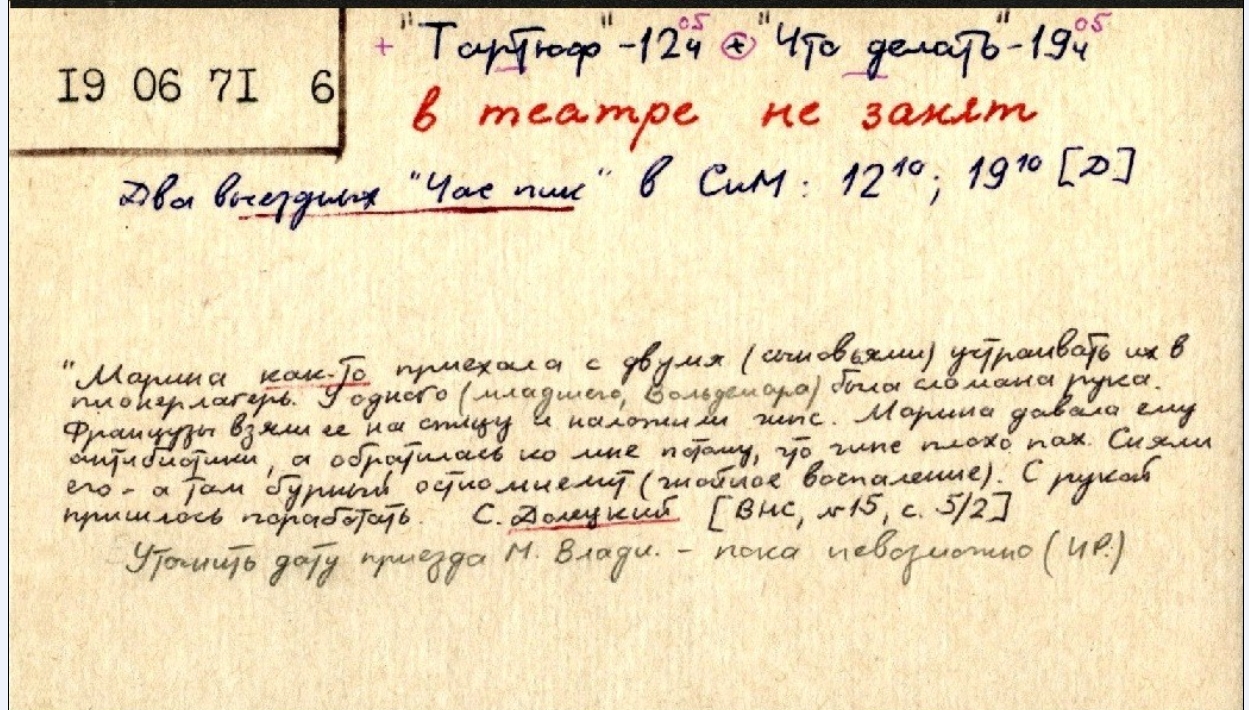 19 06 71 6
+ "Тартюф" - 12ч 05 ⊕ "Что делать" - 19ч 05
в театре не занят
Два выездных "Час пик" в СиМ: 12 10; 19 10 [Д]
"Марина как-то приехала с двумя (сыновьями) устраивать их в
пионерлагерь. У одного (младшего, Вольдемара) была сломана рука.
Французы взяли ее на спицу и наложили гипс. Марина давала ему
антибиотики, а обратилась ко мне потому, что гипс плохо пах. Сняли
его - а там бурный остиомиелит (гнойное воспаление). С рукой
пришлось поработать. С. Долецкий [ВНС, №15, с. 5/2]
Уточнить дату приезда М. Влади. - пока невозможно (ИР.)